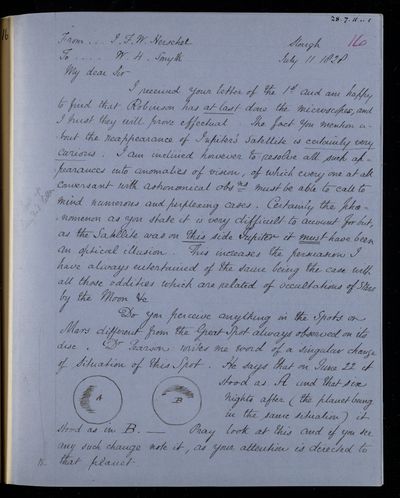 28.7.11
16
From ... J. F. W. Herschel Slough 160
To ..... W. H. Smyth July 11 1828
My dear Sir
I received your letter of the 1st and am happy
to find that Robinson has at last done the microscopes, and
I trust they will prove effectual. The fact you mention a-
bout the reappearance of Jupiter's Satellite is certainly very
curious. I am inclined however to resolve all such ap-
pearances into anomalies of vision, of which every one at all
conversant with astronomical obsns must be able to call to
mind numerous and perplexing cases. Certainly the phe-
nomenon as you state it is very difficult to account for but,
as the Satellite was on this side Jupiter it must have been
an optical illusion. This increases the persuasion I
have always entertained of the same being the case with
all those oddities which are related of occultations of Stars
by the Moon &c
Do you perceive anything in the Spots on
Mars different from the Great Spot always observed on its
disc. Dr Pearson writes me word of a singular change
of situation of this Spot. He says that on June 22 it
stood as A and that six
nights after (the planet being
in the same situation) it
A B
stood as in B. — Pray look at this and if you see
any such change note it, as your attention is directed to
that planet